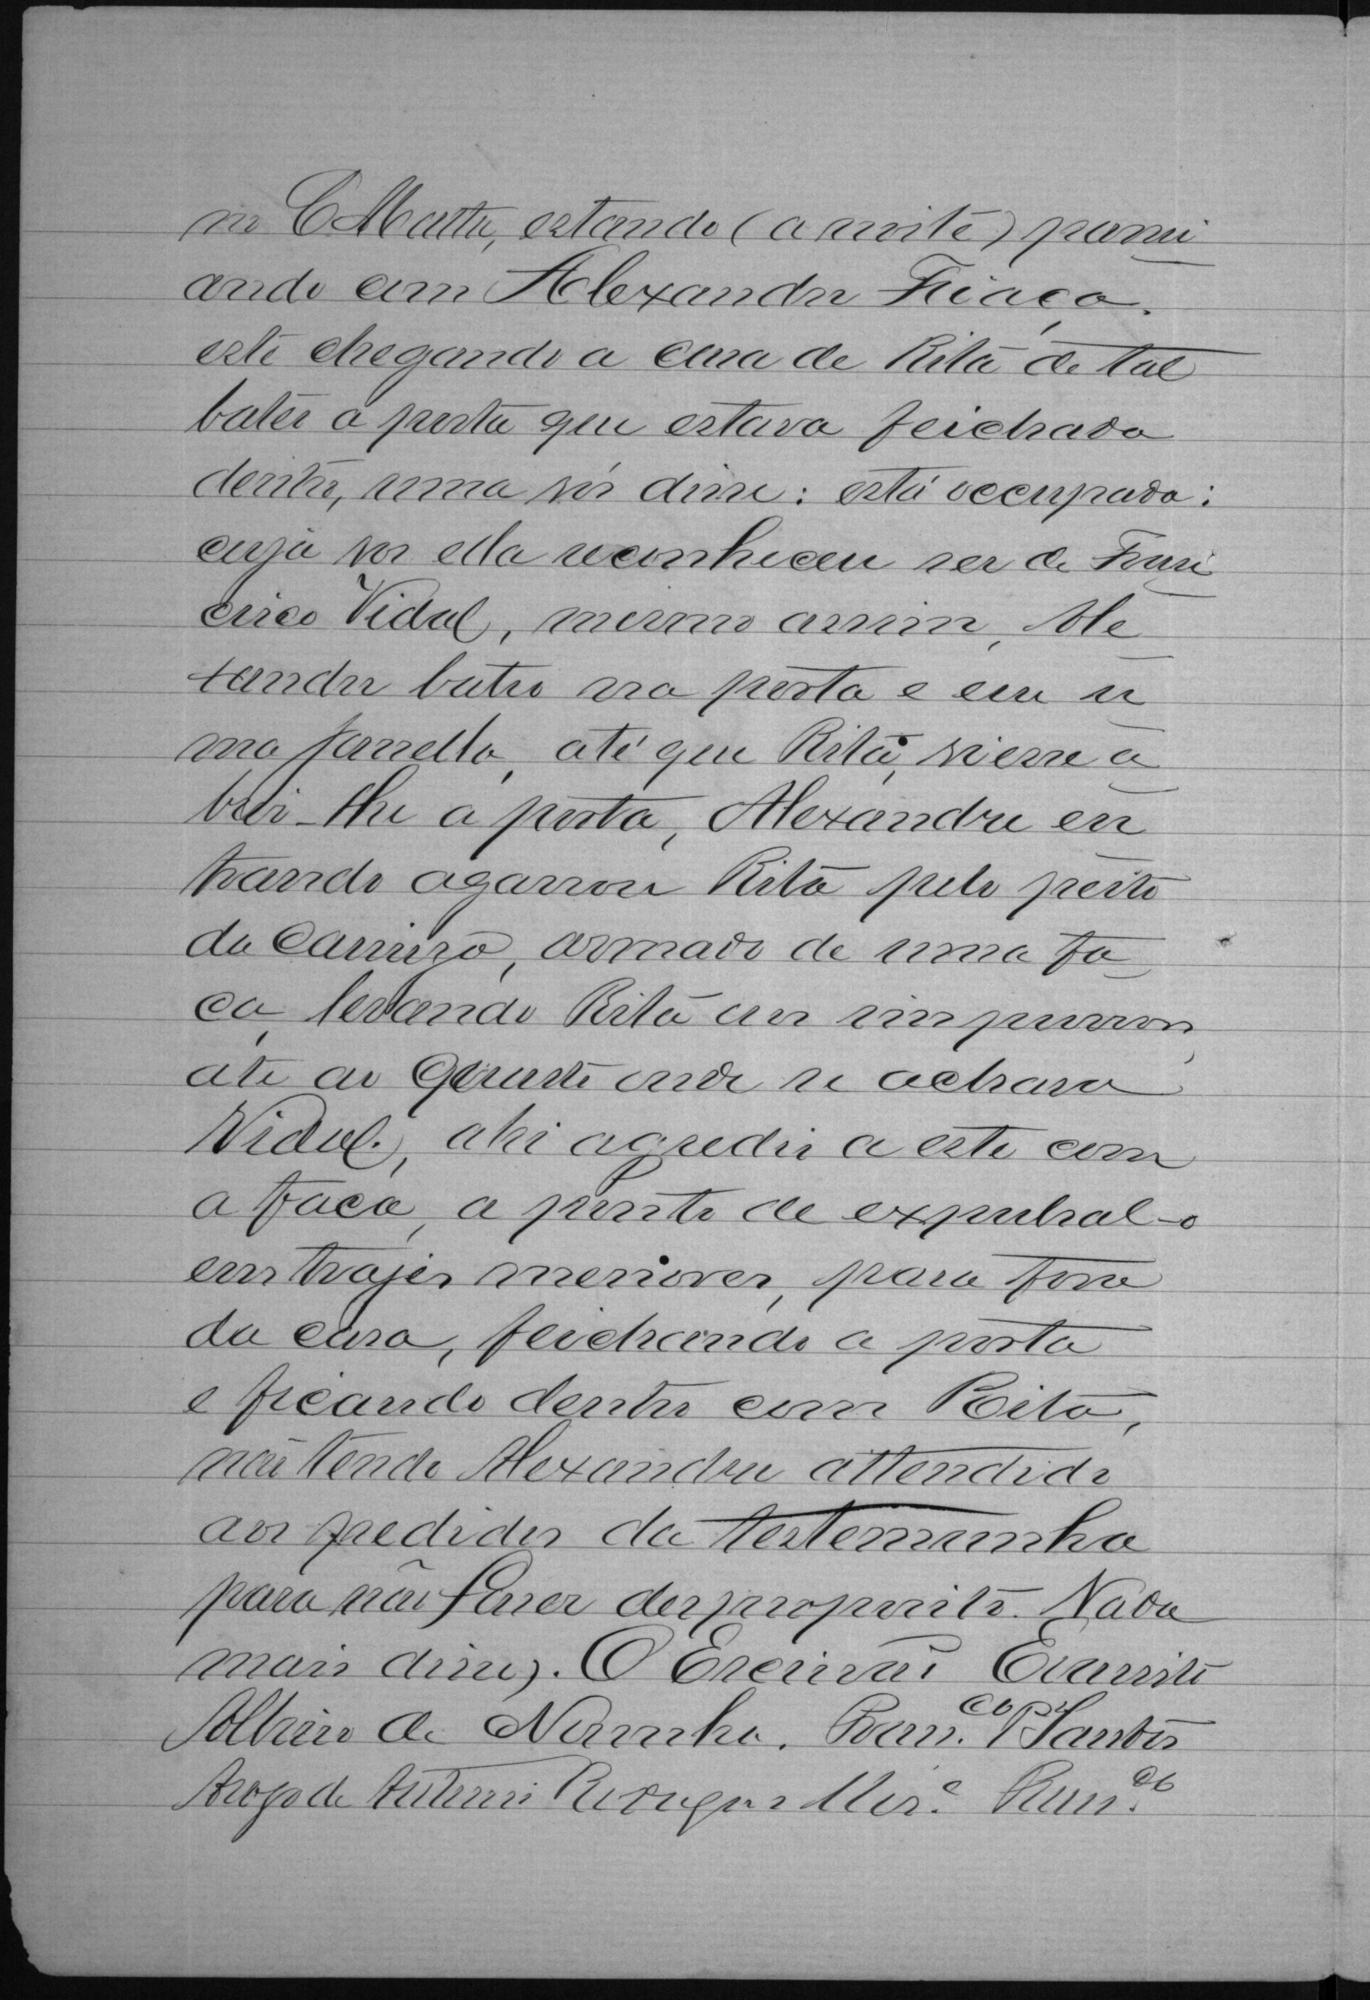 no Matta, estando (a noite) passei
ando com Alexandre Friaça.
este chegando a casa de Rita de tal
bateo a porta que estava feichada
dentro, uma vós disse: está occupada:
cuja vos ella reconheceu ser de Fran
cisco Vidal, mesmo assim, Ale
xandre bateo na porta e em u
ma janella, até que Rita, viesse a
brir-lhe a porta, Alexandre en
trando agarrou Rita pelo peito
da camiza, armado de uma fa
ca, levando Rita aos impurrons,
até ao quarto onde se achava
Vidal, ahi agredio a este com
a faca, a ponto de expulsal-o
em trajes menores, para fora
da casa, feichando a porta
e ficando dentro com Rita,
não tendo Alexandre attendido
aos pedidos da testemunha
para não faser desproposito. Nada
mais disse). O Escrivão Evaristo
Albino de Noronha. Ram.co P Santos
Arogo de Antonio Rodrigues